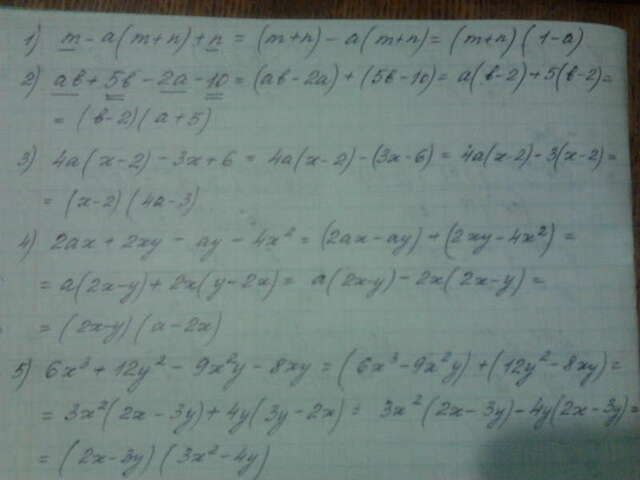 1) m - a(m+n) + n = (m+n) - a(m+n) = (m+n)(1-a)
2) ab + 5b - 2a - 10 = (ab - 2a) + (5b - 10) = a(b-2) + 5(b-2) =
= (b-2)(a+5)
3) 4a(x-2) - 3x + 6 = 4a(x-2) - (3x-6) = 4a(x-2) - 3(x-2) =
= (x-2)(4a-3)
4) 2ax + 2xy - ay - 4x² = (2ax - ay) + (2xy - 4x²) =
= a(2x-y) + 2x(y-2x) = a(2x-y) - 2x(2x-y) =
= (2x-y)(a-2x)
5) 6x³ + 12y² - 9x²y - 8xy = (6x³ - 9x²y) + (12y² - 8xy) =
= 3x²(2x-3y) + 4y(3y-2x) = 3x²(2x-3y) - 4y(2x-3y) =
= (2x-3y)(3x²-4y)